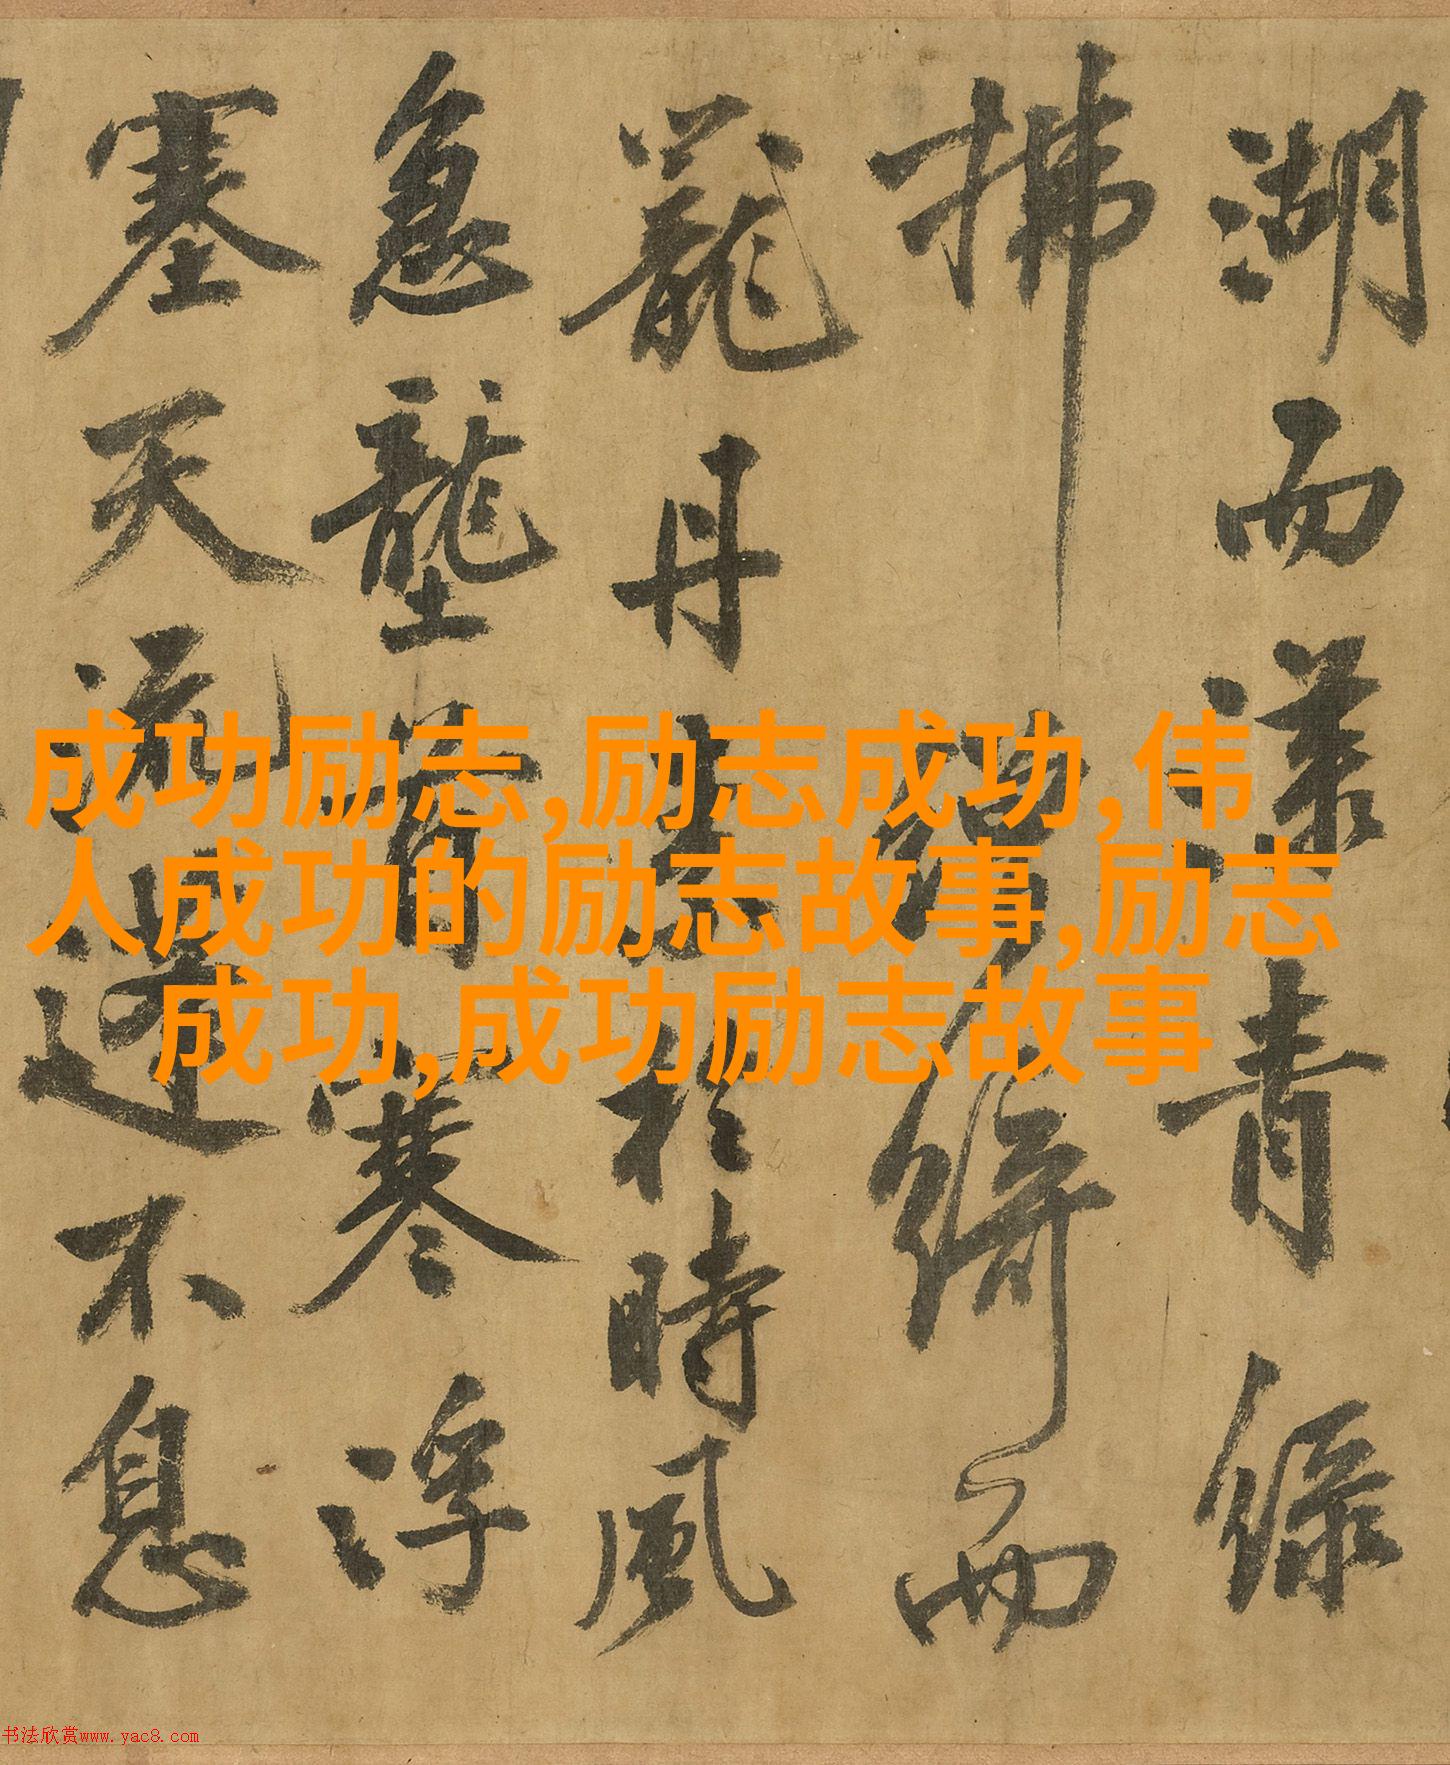 湖而漾青綠
拂綺而
蘢丹於時風
急壟首寒浮
塞天流不息
成功励志,励志成功,伟
人成功的励志故事,励志
成功,成功励志故事
书法欣赏www.yac8.com